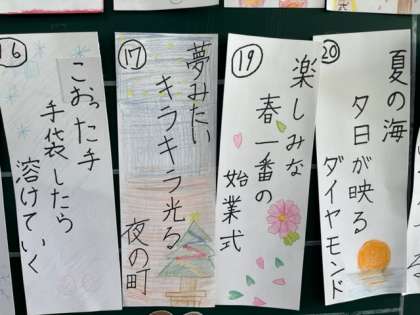 ⑯
こおった手
手袋したら
溶けていく
⑰
夢みたい
キラキラ光る
夜の町
⑲
楽しみな
春一番の
始業式
⑳
夏の海
夕日が映る
ダイヤモンド